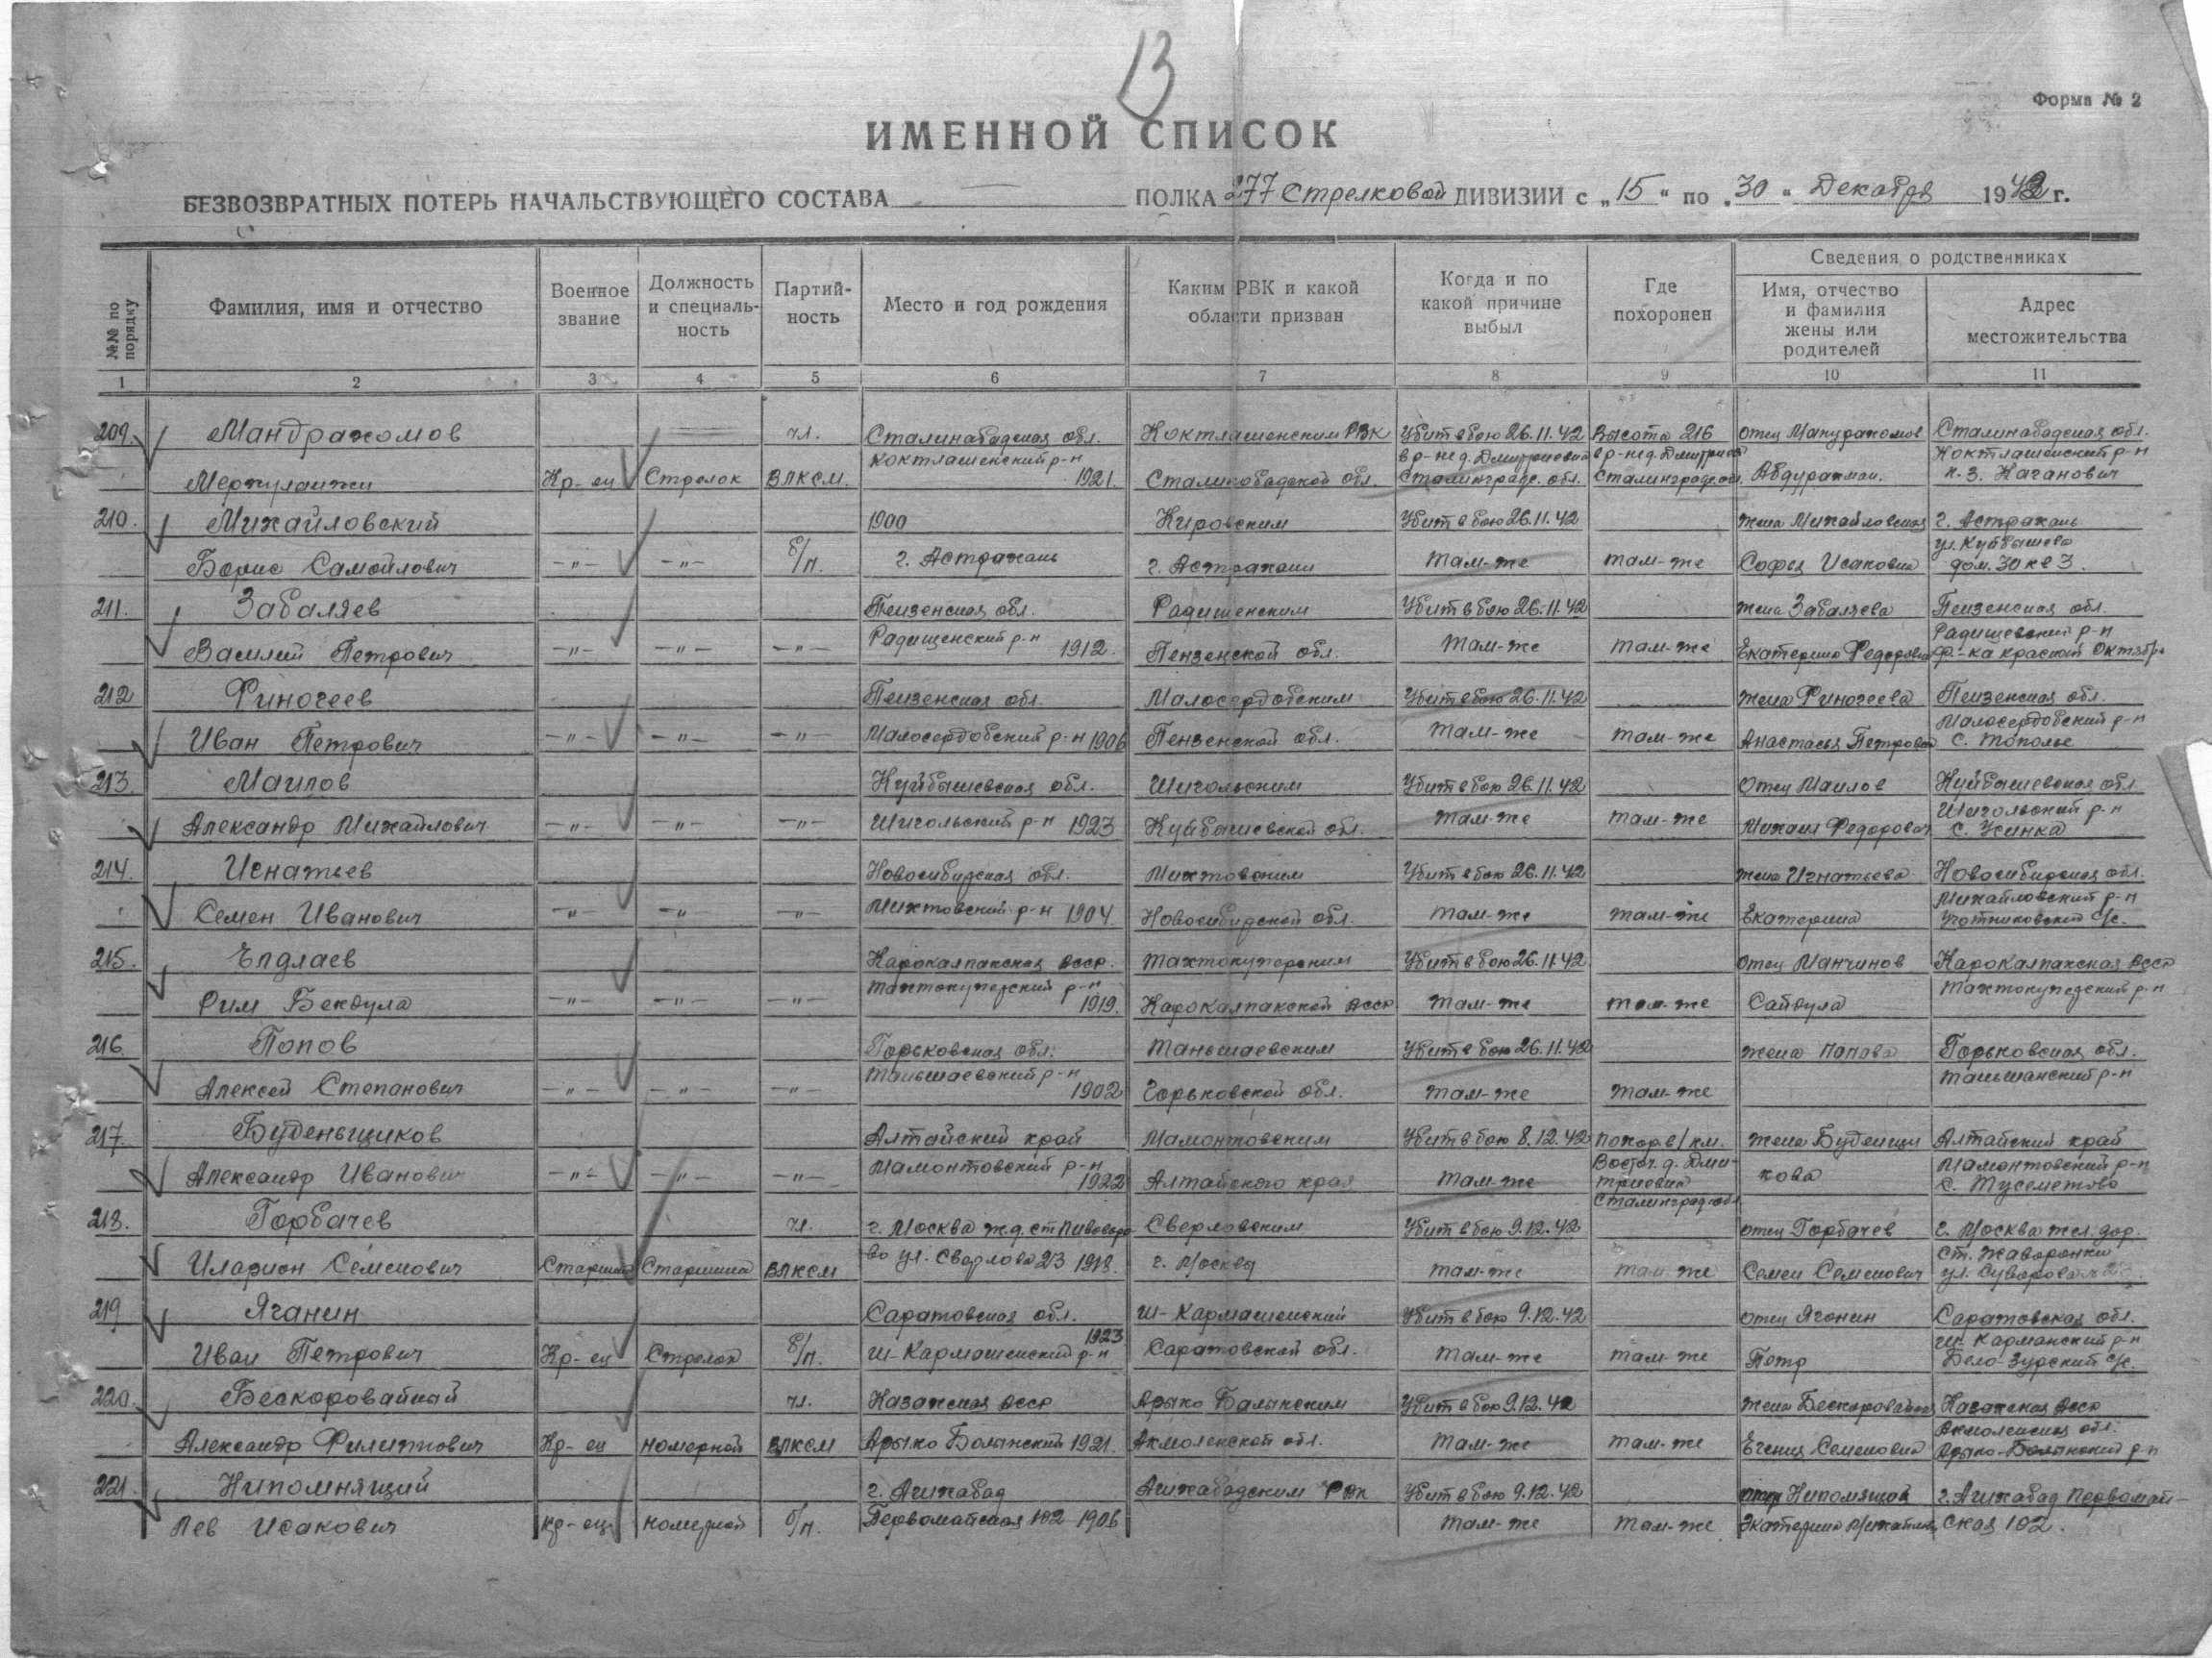 13
Форма № 2
ИМЕННОЙ СПИСОК
БЕЗВОЗВРАТНЫХ ПОТЕРЬ НАЧАЛЬСТВУЮЩЕГО СОСТАВА ПОЛКА 277 Стрелковой ДИВИЗИИ с „15“ по „30“ Декабря 1942 г.
№№ по порядку
Фамилия, имя и отчество
Военное звание
Должность и специаль-ность
Партий-ность
Место и год рождения
Каким РВК и какой области призван
Когда и по какой причине выбыл
Где похоронен
Сведения о родственниках
Имя, отчество и фамилия жены или родителей
Адрес местожительства
1 2 3 4 5 6 7 8 9 10 11
209. Мандрахомов чл. Сталинабадская обл. Кокташенским РВК Убит в бою 26.11.42 Высота 216 отец Сталинабадская обл.
Коктлашенский р-н в р-не д. Дмитриевка в р-не д. Коктлашенский р-н
Кр-ец Стрелок ВЛКСМ. 1921. Сталинобадской обл. Сталинградс. обл. Сталинградской Абдурахман. к.з.
210. Михайловский 1900 Кировским Убит в бою 26.11.42 жена Михайловская г. Астрахань
ул. Куйбышева
Борис Самойлович -"- -"- б/п. г. Астрахань г. Астрахани там-же там-же Софья Исаковна дом. 30 кв 3.
211. Забаляев Пензенская обл. Радищенским Убит в бою 26.11.42 жена Забаляева Пензенская обл.
Радищенский р-н Радищевский р-н
Василий Петрович -"- -"- -"- 1912. Пензенской обл. там-же там-же Екатерина Федоровна ф-ка красной Октябрь
212 Финогеев Пензенская обл. Малосердобским Убит в бою 26.11.42 жена Финогеева Пензенская обл.
Малосердобский р-н
Иван Петрович -"- -"- -"- Малосердобский р-н 1906 Пензенской обл. там-же там-же Анастасья Петровна с. Тополье
213. Маилов Куйбышевская обл. Шигольским Убит в бою 26.11.42 отец Маилов Куйбышевская обл
Шигольский р-н
Александр Михайлович -"- -"- -"- Шигольский р-н 1923 Куйбышевской обл. там-же там-же Михаил Федорович с. Усинка
214. Игнатьев Новосибирская обл. Михтовским Убит в бою 26.11.42 жена Игнатьева Новосибирская обл.
Михайловский р-н
Семен Иванович -"- -"- -"- Михтовский р-н 1904. Новосибирской обл. там-же там-же Екатерина с/с.
215. Елдлаев Карокалпакская АССР. Тахтокуперским Убит в бою 26.11.42 отец Манчинов Карокалпакская АССР
Тахтокуперский р-н Тахтокуперский р-н
Рим Бекдула -"- -"- -"- 1919. Карокалпакской АССР там-же там-же Сайдула
216. Попов Горьковская обл. Таньшаевским Убит в бою 26.11.42 жена Попова Горьковская обл.
Таньшаевский р-н Таньшанский р-н
Алексей Степанович -"- -"- -"- 1902 Горьковской обл. там-же там-же
217. Буденьщиков Алтайский край Мамонтовским Убит в бою 8.12.42 похор. в 1 км. жена Буденщи Алтайский край
Мамонтовский р-н Восточ. д. Дми- Мамонтовский р-н
Александр Иванович -"- -"- -"- 1922 Алтайского края там-же триевка кова с. Тусеметово
Сталинград. обл.
218. Горбачев чл. г. Москва ж.д. ст Пивоваро Сверловским Убит в бою 9.12.42 отец Горбачев г. Москва жел. дор.
во ул. Свердлова 23 1918. ст. Жаворонки
Иларион Семенович Старшина Старшина ВЛКСМ г. Москва там-же там-же Семен Семенович ул. Суворова 23
219 Яганин Саратовская обл. Ш-Кармашенский Убит в бою 9.12.42 отец Яганин Саратовская обл.
1923 Ш. Карманский р-н
Иван Петрович Кр-ец Стрелок б/п. Ш-Кармашенский р-н Саратовской обл. там-же там-же Петр Бело-Зурский с/с.
220. Бескоровайный чл. Казахская АССР Арыко Балыкским Убит в бою 9.12.42 жена Бескоровайная Казахская АССР
Акмоленская обл.
Александр Филиппович Кр-ец номерной ВЛКСМ Арыко Болынский 1921. Акмоленской обл. там-же там-же Евгения Семеновна Арыко-Балыкский р-н
221. Нипомнящий г. Ашхабад Ашхабадским РВК Убит в бою 9.12.42 Нипомящая г. Ашхабад Первомай-
Лев Исакович кр-ец номерной б/п. Первомайская 102 1906 там-же там-же Екатерина Михайлов. ская 102.